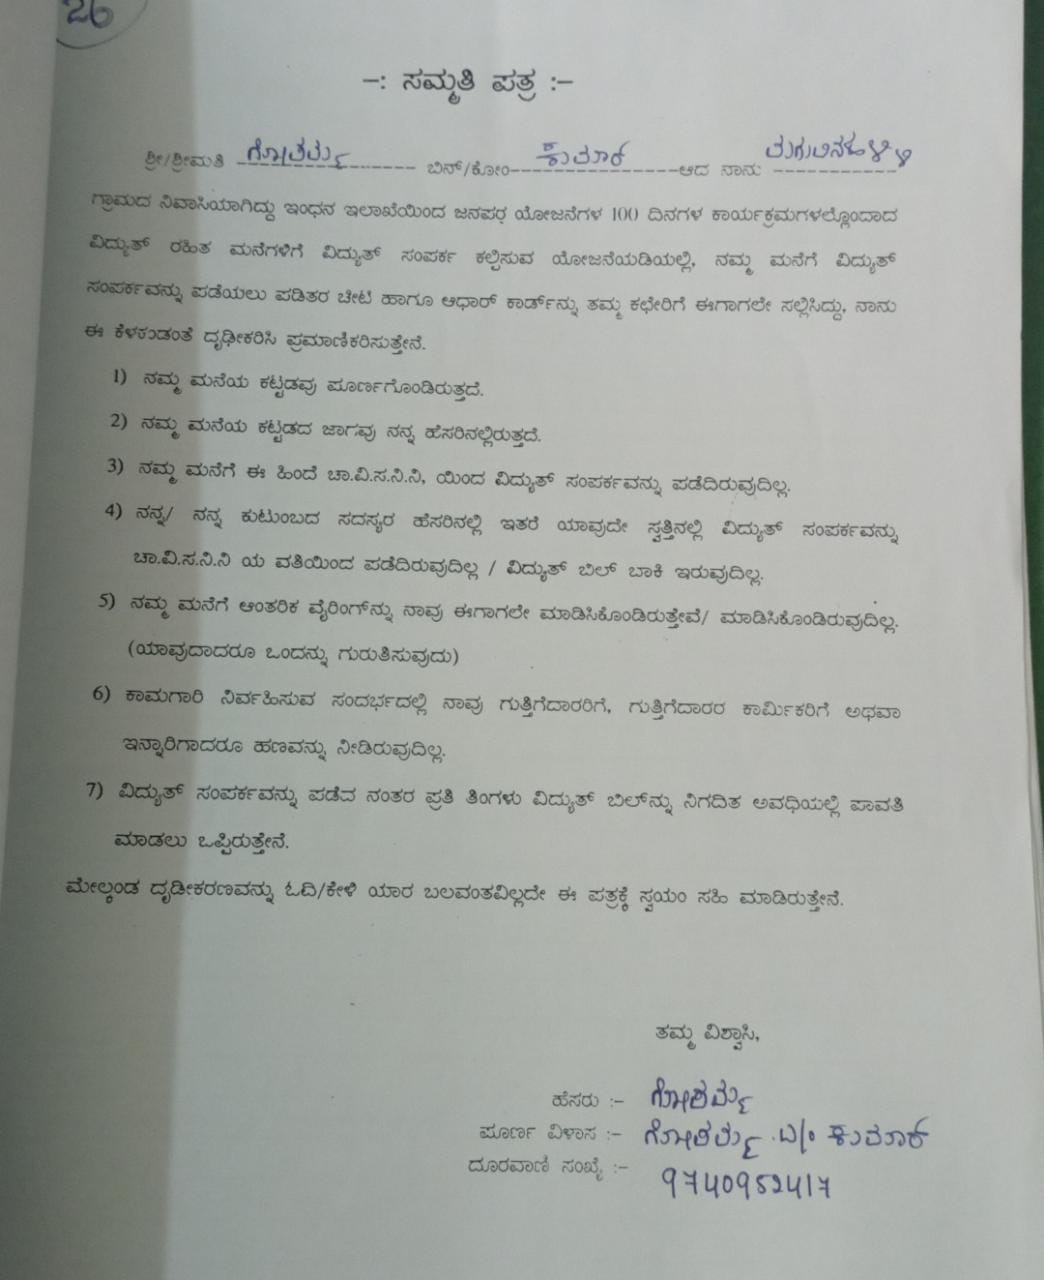 26
-: ಸಮ್ಮತಿ ಪತ್ರ :-
ಶ್ರೀ/ಶ್ರೀಮತಿ ಗೋತಮ್ಮ ಬಿನ್/ಕೋಂ ಕುಮಾರ ಆದ ನಾನು
ಗ್ರಾಮದ ನಿವಾಸಿಯಾಗಿದ್ದು ಇಂಧನ ಇಲಾಖೆಯಿಂದ ಜನಪರ ಯೋಜನೆಗಳ 100 ದಿನಗಳ ಕಾರ್ಯಕ್ರಮಗಳಲ್ಲೊಂದಾದ
ವಿದ್ಯುತ್ ರಹಿತ ಮನೆಗಳಿಗೆ ವಿದ್ಯುತ್ ಸಂಪರ್ಕ ಕಲ್ಪಿಸುವ ಯೋಜನೆಯಡಿಯಲ್ಲಿ, ನಮ್ಮ ಮನೆಗೆ ವಿದ್ಯುತ್
ಸಂಪರ್ಕವನ್ನು ಪಡೆಯಲು ಪಡಿತರ ಚೀಟಿ ಹಾಗೂ ಆಧಾರ್ ಕಾರ್ಡ್‌ನ್ನು ತಮ್ಮ ಕಛೇರಿಗೆ ಈಗಾಗಲೇ ಸಲ್ಲಿಸಿದ್ದು, ನಾನು
ಈ ಕೆಳಕಂಡಂತೆ ದೃಢೀಕರಿಸಿ ಪ್ರಮಾಣಿಕರಿಸುತ್ತೇನೆ.
1) ನಮ್ಮ ಮನೆಯ ಕಟ್ಟಡವು ಪೂರ್ಣಗೊಂಡಿರುತ್ತದೆ.
2) ನಮ್ಮ ಮನೆಯ ಕಟ್ಟಡದ ಜಾಗವು ನನ್ನ ಹೆಸರಿನಲ್ಲಿರುತ್ತದೆ.
3) ನಮ್ಮ ಮನೆಗೆ ಈ ಹಿಂದೆ ಚಾ.ವಿ.ಸ.ನಿ.ನಿ, ಯಿಂದ ವಿದ್ಯುತ್ ಸಂಪರ್ಕವನ್ನು ಪಡೆದಿರುವುದಿಲ್ಲ.
4) ನನ್ನ/ ನನ್ನ ಕುಟುಂಬದ ಸದಸ್ಯರ ಹೆಸರಿನಲ್ಲಿ ಇತರೆ ಯಾವುದೇ ಸ್ವತ್ತಿನಲ್ಲಿ ವಿದ್ಯುತ್ ಸಂಪರ್ಕವನ್ನು
ಚಾ.ವಿ.ಸ.ನಿ.ನಿ ಯ ವತಿಯಿಂದ ಪಡೆದಿರುವುದಿಲ್ಲ / ವಿದ್ಯುತ್ ಬಿಲ್ ಬಾಕಿ ಇರುವುದಿಲ್ಲ.
5) ನಮ್ಮ ಮನೆಗೆ ಆಂತರಿಕ ವೈರಿಂಗ್‌ನ್ನು ನಾವು ಈಗಾಗಲೇ ಮಾಡಿಸಿಕೊಂಡಿರುತ್ತೇವೆ/ ಮಾಡಿಸಿಕೊಂಡಿರುವುದಿಲ್ಲ.
(ಯಾವುದಾದರೂ ಒಂದನ್ನು ಗುರುತಿಸುವುದು)
6) ಕಾಮಗಾರಿ ನಿರ್ವಹಿಸುವ ಸಂದರ್ಭದಲ್ಲಿ ನಾವು ಗುತ್ತಿಗೆದಾರರಿಗೆ, ಗುತ್ತಿಗೆದಾರರ ಕಾರ್ಮಿಕರಿಗೆ ಅಥವಾ
ಇನ್ನಾರಿಗಾದರೂ ಹಣವನ್ನು ನೀಡಿರುವುದಿಲ್ಲ.
7) ವಿದ್ಯುತ್ ಸಂಪರ್ಕವನ್ನು ಪಡೆದ ನಂತರ ಪ್ರತಿ ತಿಂಗಳು ವಿದ್ಯುತ್ ಬಿಲ್‌ನ್ನು ನಿಗದಿತ ಅವಧಿಯಲ್ಲಿ ಪಾವತಿ
ಮಾಡಲು ಒಪ್ಪಿರುತ್ತೇನೆ.
ಮೇಲ್ಕಂಡ ದೃಡೀಕರಣವನ್ನು ಓದಿ/ಕೇಳಿ ಯಾರ ಬಲವಂತವಿಲ್ಲದೇ ಈ ಪತ್ರಕ್ಕೆ ಸ್ವಯಂ ಸಹಿ ಮಾಡಿರುತ್ತೇನೆ.
ತಮ್ಮ ವಿಶ್ವಾಸಿ,
ಹೆಸರು :- ಗೋತಮ್ಮ
ಪೂರ್ಣ ವಿಳಾಸ :- ಗೋತಮ್ಮ ಬಿ/ಂ ಕುಮಾರ್
ದೂರವಾಣಿ ಸಂಖ್ಯೆ :- 9740952417